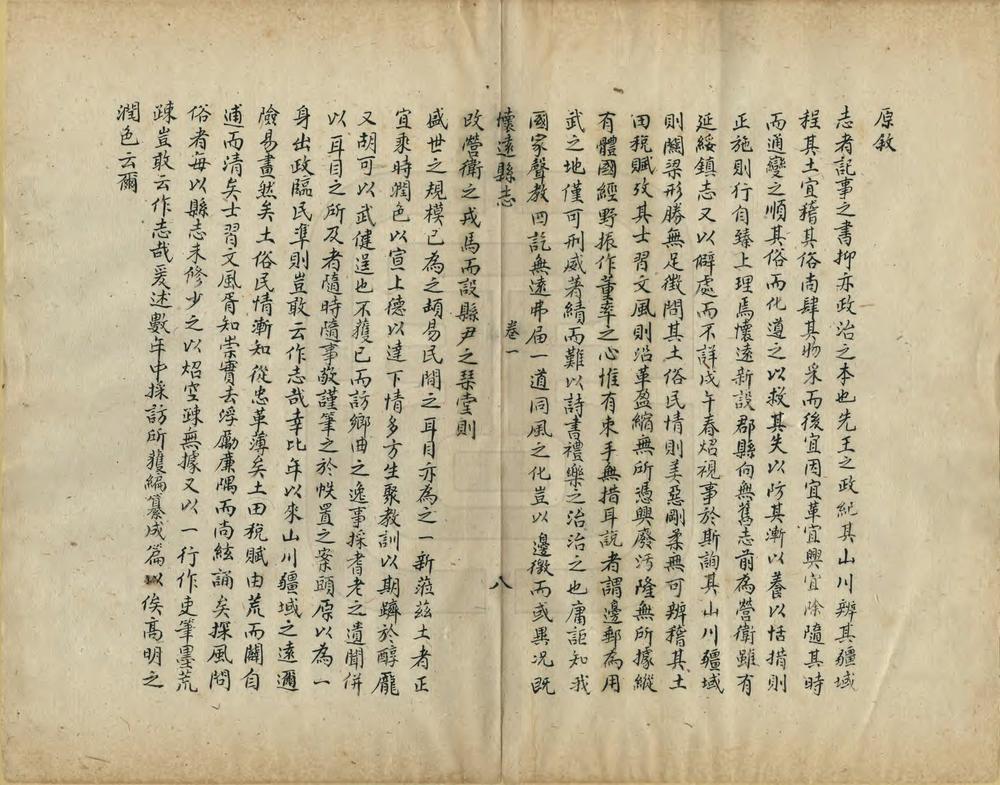 原敘
志者記事之書抑亦政治之本也先王之政紀其山川辨其疆域
程其土宜稽其俗尚肆其物采而後宜因宜革宜興宜除隨其時
而通變之順其俗而化導之以救其失以防其漸以養以恬措則
正施則行自臻上理焉懷遠新設郡縣向無舊志前為營衛雖有
延綏鎮志又以僻處而不詳戊午春炤視事於斯詢其山川疆域
則關梁形勝無足徵問其土俗民情則美惡剛柔無可辨稽其土
田稅賦攷其士習文風則沿革盈縮無所憑興廢污隆無所據縱
有體國經野振作董率之心惟有束手無措耳說者謂邊鄙為用
武之地僅可刑威著績而難以詩書禮樂之治治之也庸詎知我
國家聲教四訖無遠弗屆一道同風之化豈以邊徼而或異況既
懷遠縣志 卷一 八
改營衛之戎馬而設縣尹之琴堂則
盛世之規模已為之頓易民間之耳目亦為之一新蒞茲土者正
宜乘時潤色以宣上德以達下情多方生聚教訓以期躋於醇龐
又胡可以武健逞也不獲已而訪鄉曲之逸事採耆老之遺聞併
以耳目之所及者隨時隨事敬謹筆之於帙置之案頭原以為一
身出政臨民準則豈敢云作志哉幸比年以來山川疆域之遠邇
險易畫然矣土俗民情漸知從忠革薄矣土田稅賦由荒而闢自
逋而清矣士習文風胥知崇實去浮勵廉隅而尚絃誦矣採風問
俗者每以縣志未修少之以炤空疎無據又以一行作吏筆墨荒
疎豈敢云作志哉爰述數年中採訪所獲編纂成篇以俟高明之
潤色云爾